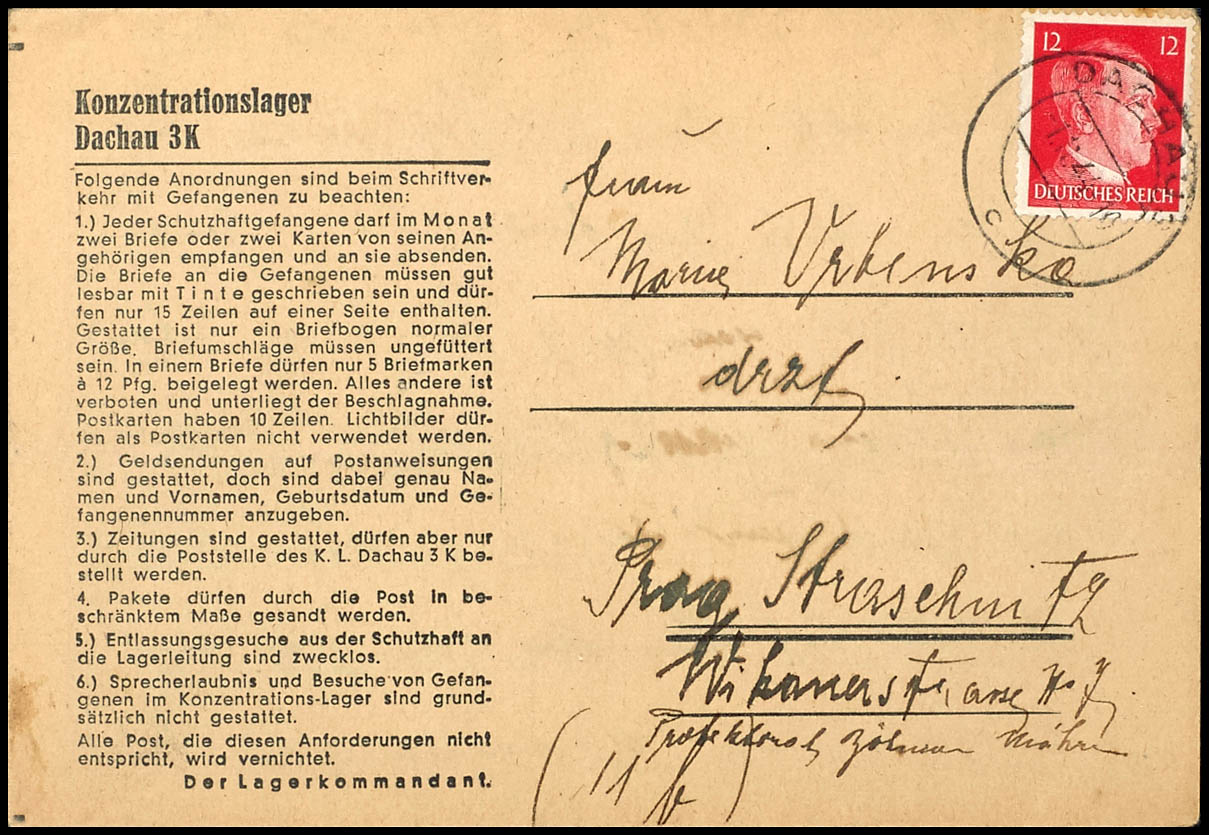 Konzentrationslager
Dachau 3K
Folgende Anordnungen sind beim Schriftver-
kehr mit Gefangenen zu beachten:
1.) Jeder Schutzhaftgefangene darf im Monat
zwei Briefe oder zwei Karten von seinen An-
gehörigen empfangen und an sie absenden.
Die Briefe an die Gefangenen müssen gut
lesbar mit Tinte geschrieben sein und dür-
fen nur 15 Zeilen auf einer Seite enthalten.
Gestattet ist nur ein Briefbogen normaler
Größe. Briefumschläge müssen ungefüttert
sein. In einem Briefe dürfen nur 5 Briefmarken
à 12 Pfg. beigelegt werden. Alles andere ist
verboten und unterliegt der Beschlagnahme.
Postkarten haben 10 Zeilen. Lichtbilder dür-
fen als Postkarten nicht verwendet werden.
2.) Geldsendungen auf Postanweisungen
sind gestattet, doch sind dabei genau Na-
men und Vornamen, Geburtsdatum und Ge-
fangenennummer anzugeben.
3.) Zeitungen sind gestattet, dürfen aber nur
durch die Poststelle des K. L. Dachau 3 K be-
stellt werden.
4. Pakete dürfen durch die Post in be-
schränktem Maße gesandt werden.
5.) Entlassungsgesuche aus der Schutzhaft an
die Lagerleitung sind zwecklos.
6.) Sprecherlaubnis und Besuche von Gefan-
genen im Konzentrations-Lager sind grund-
sätzlich nicht gestattet.
Alle Post, die diesen Anforderungen nicht
entspricht, wird vernichtet.
Der Lagerkommandant.
12 12
DEUTSCHES REICH
DACHAU 3
c
Urbenska
Prag Straschnitz
(11 b)